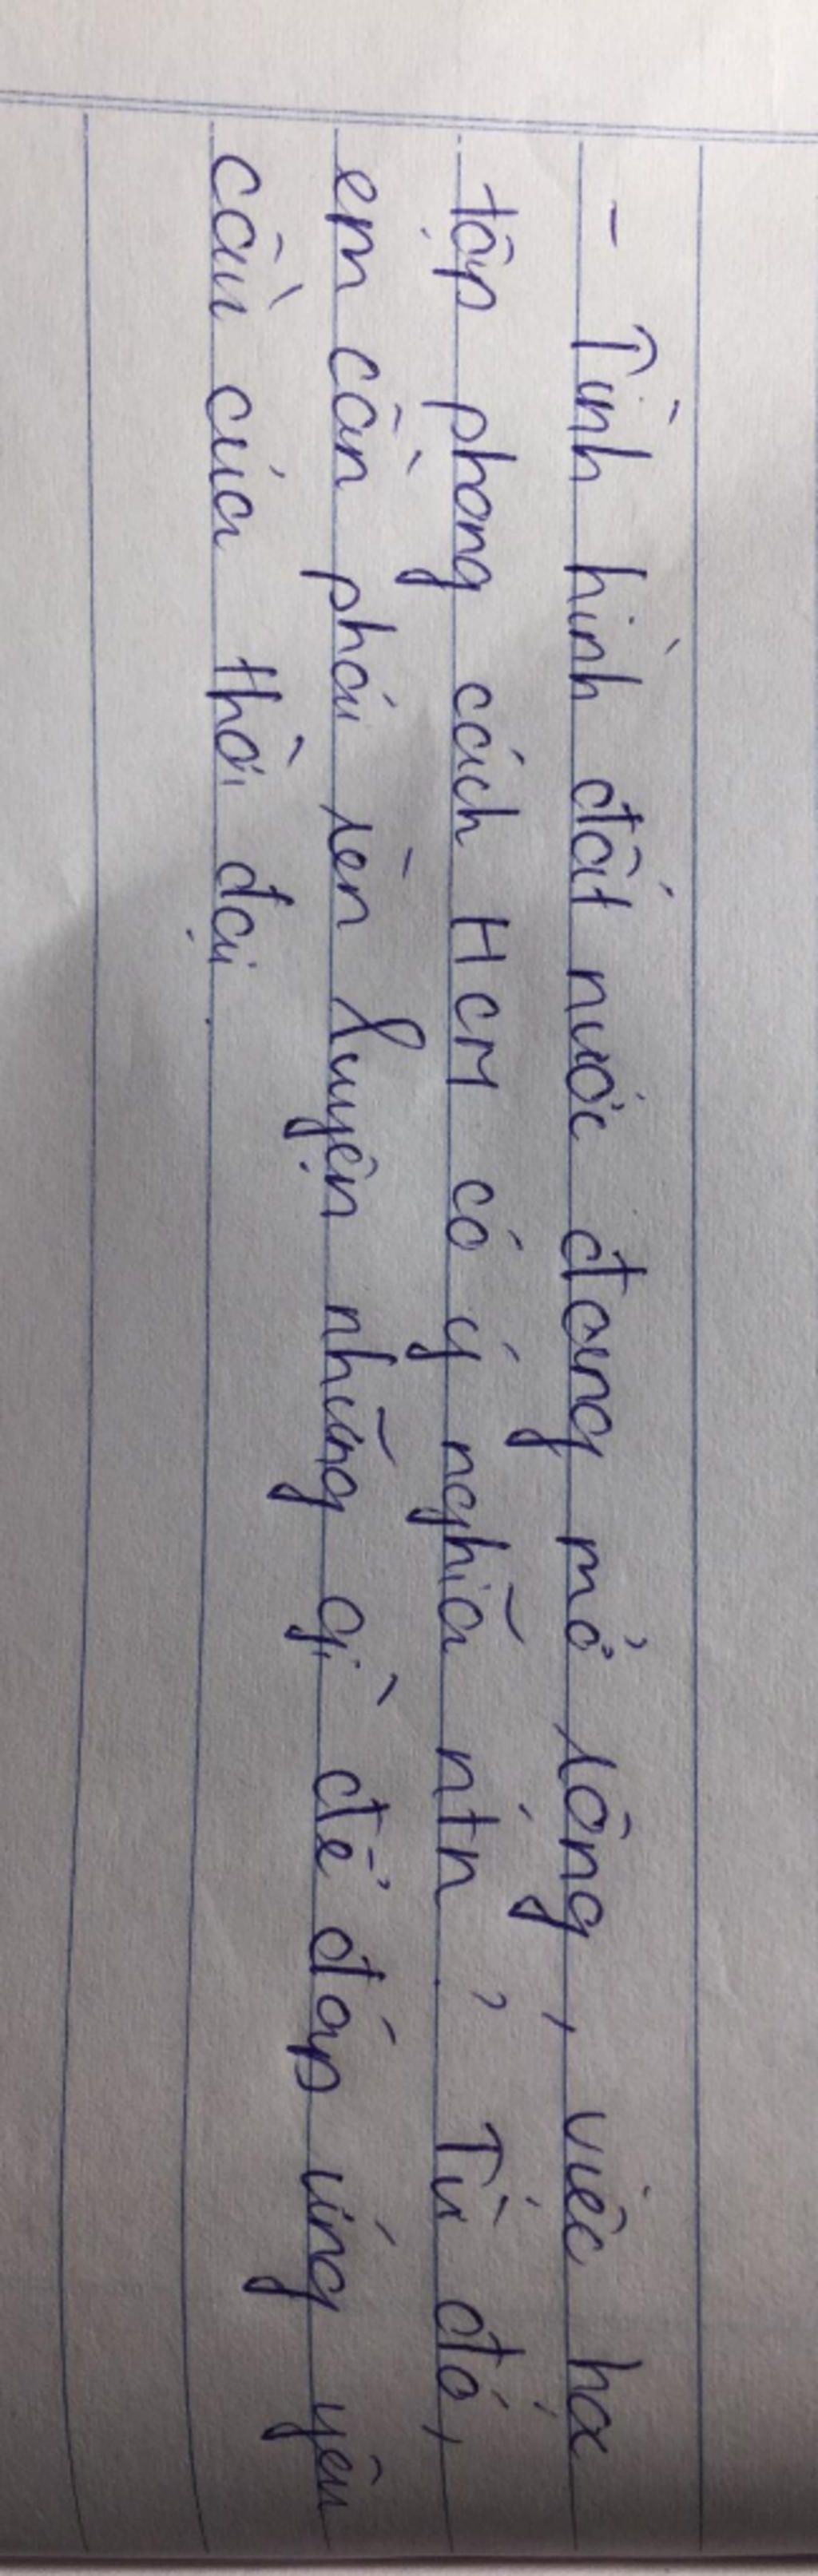 - Tình hình đất nước đang mở rộng, việc học
tập phong cách HCM có ý nghĩa ntn? Từ đó,
em cần phải rèn luyện những gì để đáp ứng yêu
cầu của thời đại.